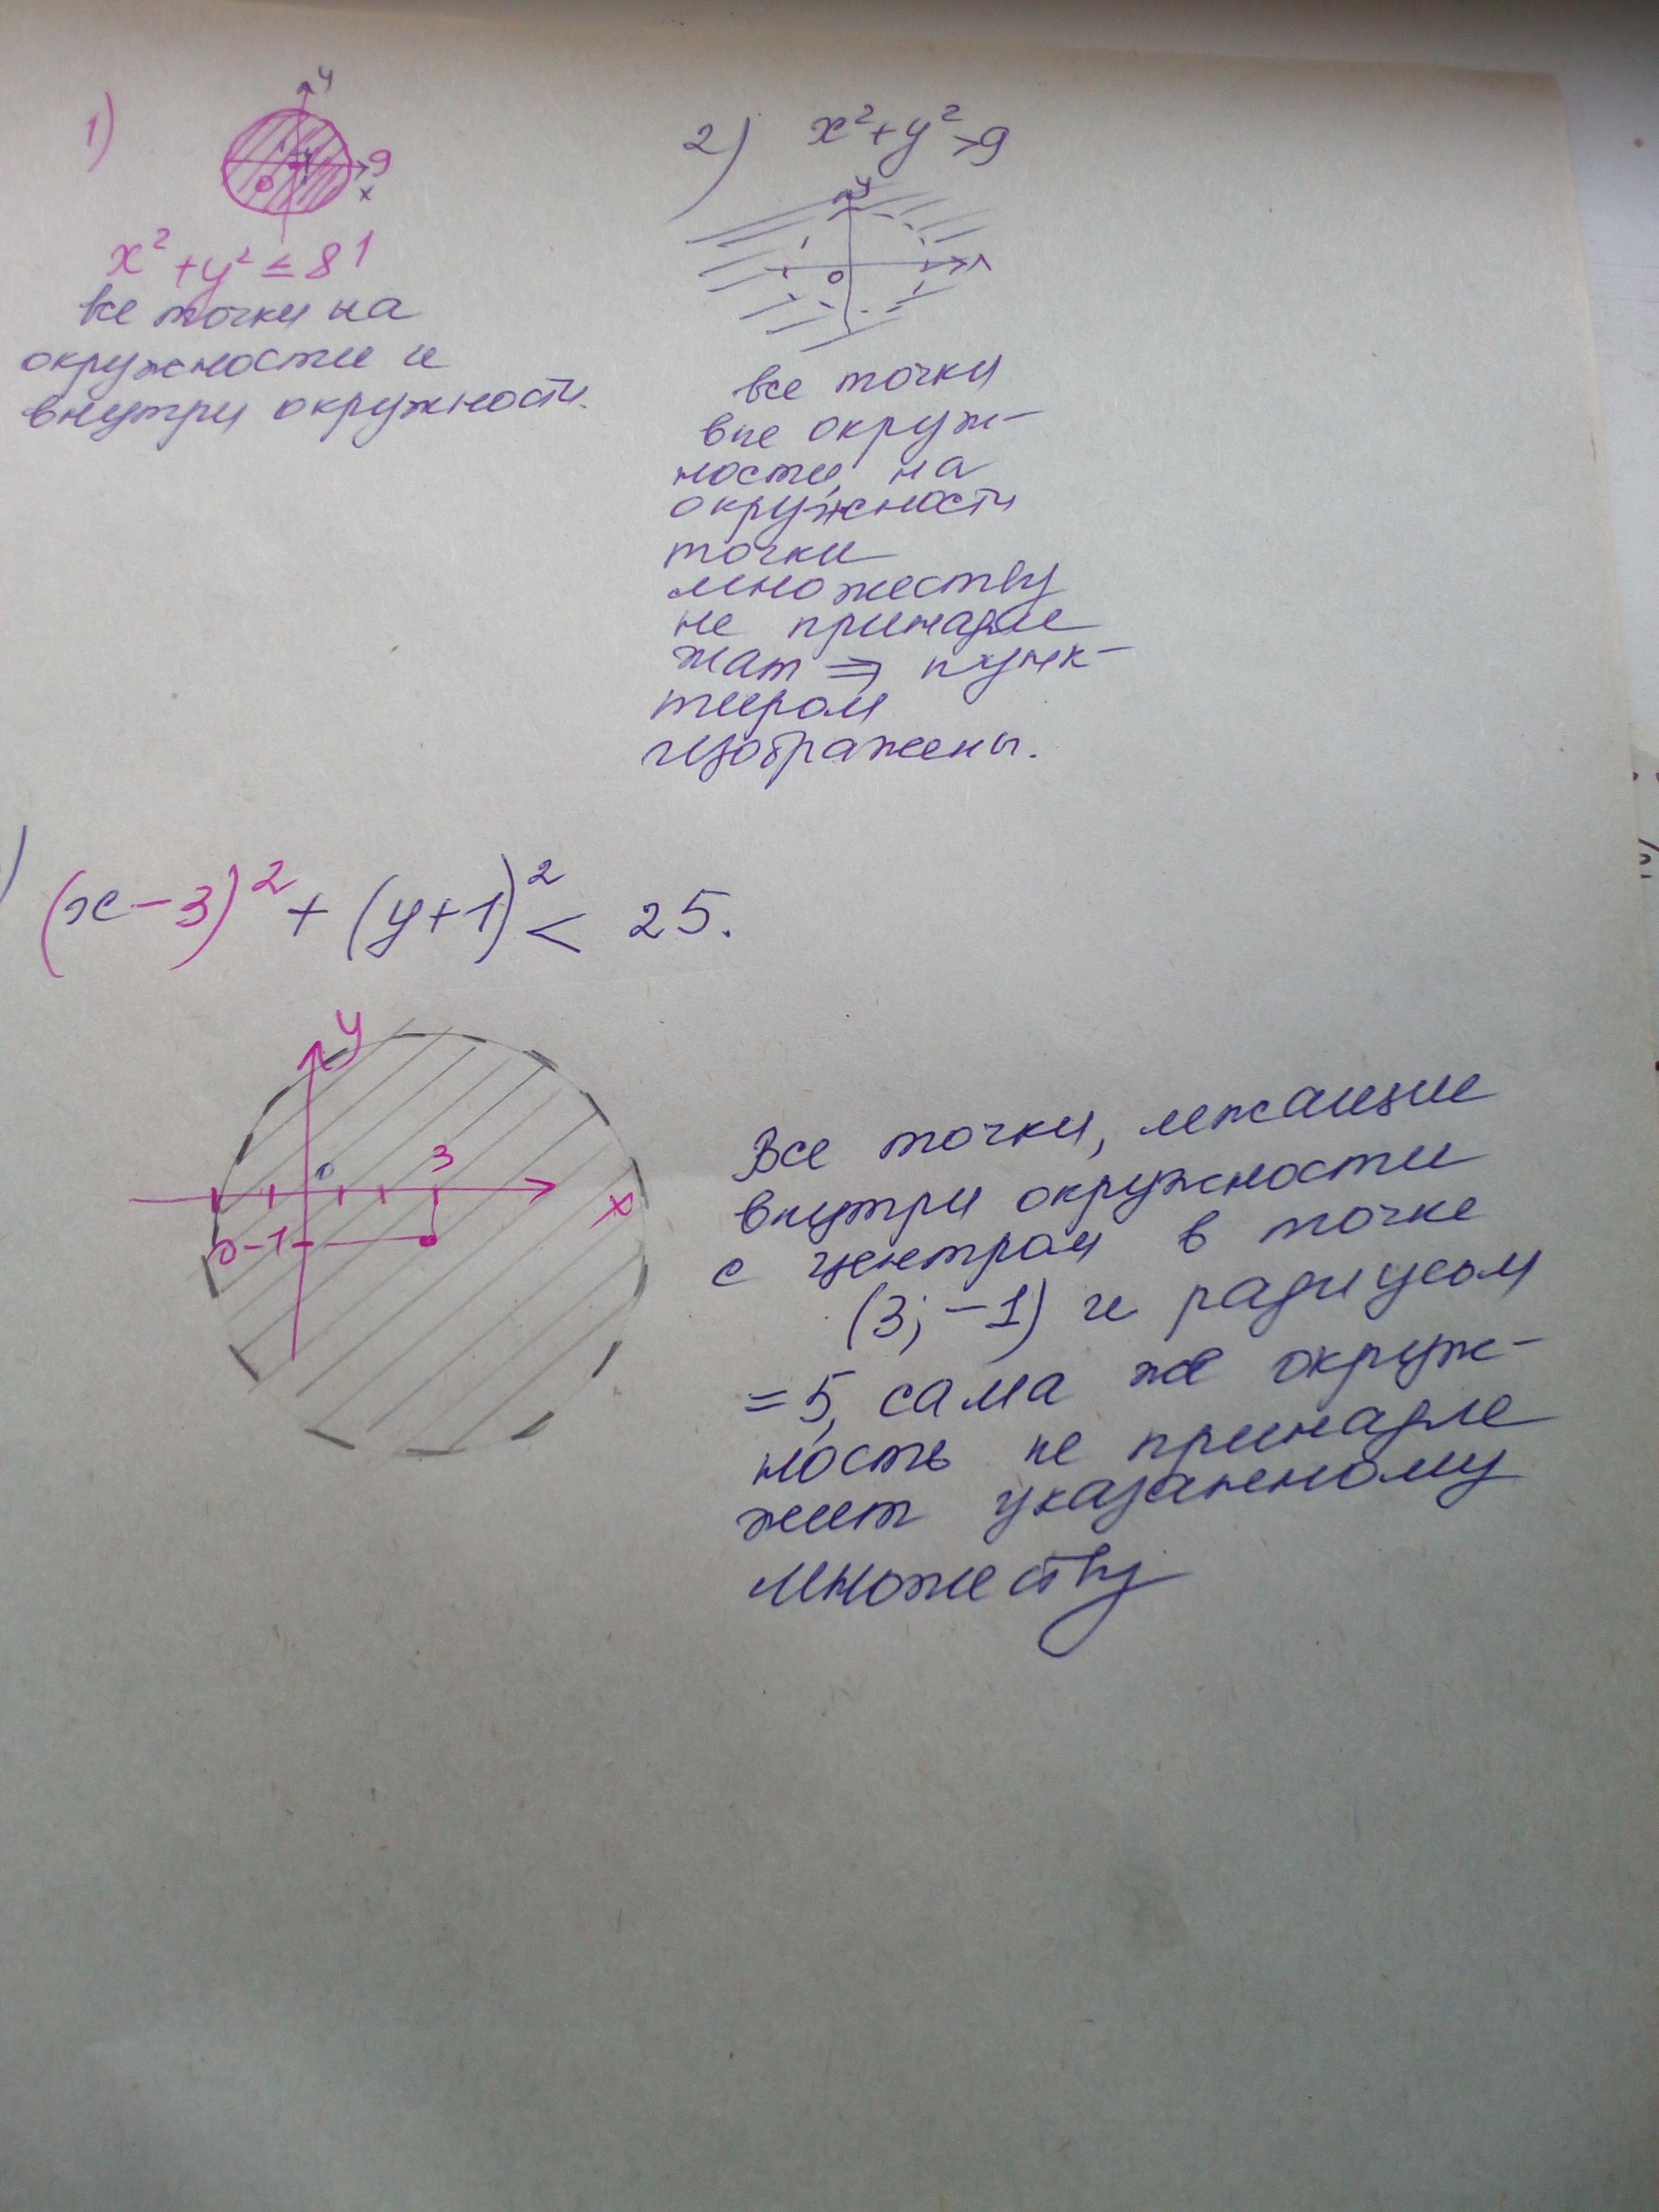 1)
y
9
x
0
x² + y² ≤ 81
все точки на
окружности и
внутри окружности.
2) x² + y² > 9
y
0
все точки
вне окруж-
ности, на
окружности
точки
множеству
не принадле
жат ⇒ пунк-
тиром
изображены.
)
(x - 3)² + (y + 1)² < 25.
y
0
3
x
-1
Все точки, лежащие
внутри окружности
с центром в точке
(3; -1) и радиусом
= 5, сама же окруж-
ность не принадле
жит указанному
множеству